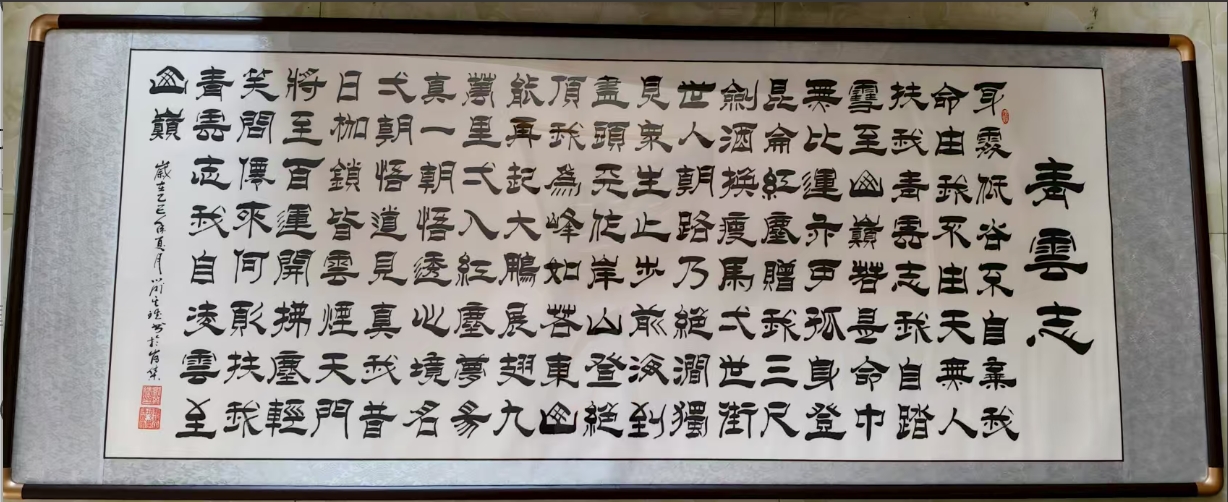 青雲志
身處低谷不自棄我
命由我不由天無人
扶我青雲志我自踏
雪至山巔若是命中
無比運亦可孤身登
昆侖紅塵贈我三尺
劍酒換瘦馬弌世街
世人朝路乃絕澗獨
見衆生止步前海到
盡頭天作岸山登絕
頂我為峰如若東山
能再起大鵬展翅九
萬里弌入紅塵夢易
真一朝悟透心境名
弌朝悟道見真我昔
日枷鎖皆雲煙天門
將至百運開拂塵輕
笑問僊來何扶我
青雲志我自凌雲至
山巔
歲在乙巳年夏月書於